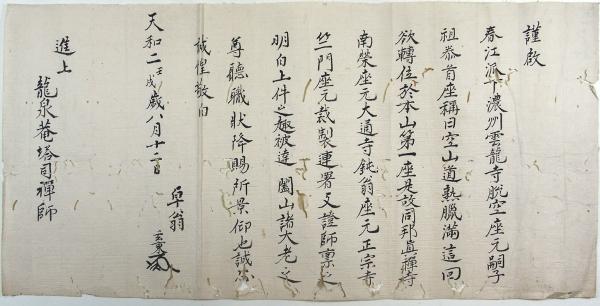 謹啟
春江派下濃州雲龍寺脫空座元嗣子
祖恭首座稱曰空山道熟臘滿這回
欲轉位於本山第一座是故同邦直指寺
南榮座元大通寺鈍翁座元正宗寺
竺門座元裁製連署之證師稟之
明白上件之趣被達 闔山諸大老之
尊聽職狀降賜所景仰也誠惶
誠惶敬白
天和二壬戌歲八月十二日 卓翁
進上 龍泉菴塔司禪師